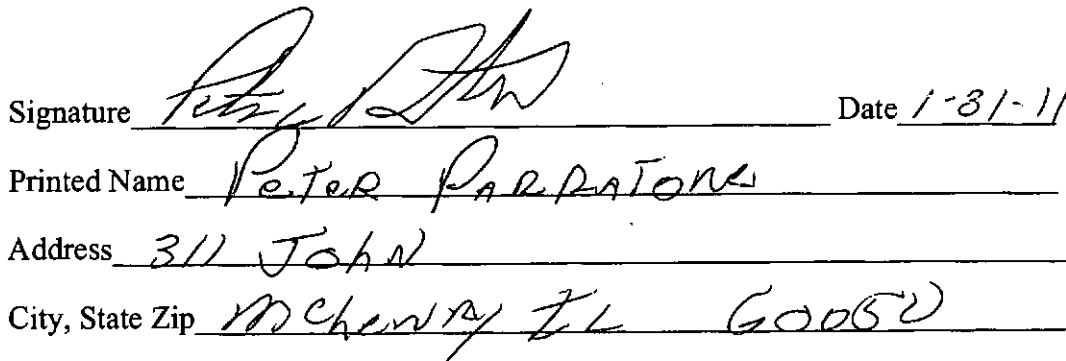 Signature Date 1-31-11
Printed Name Peter
Address 311 John
City, State Zip McHenry IL 60050